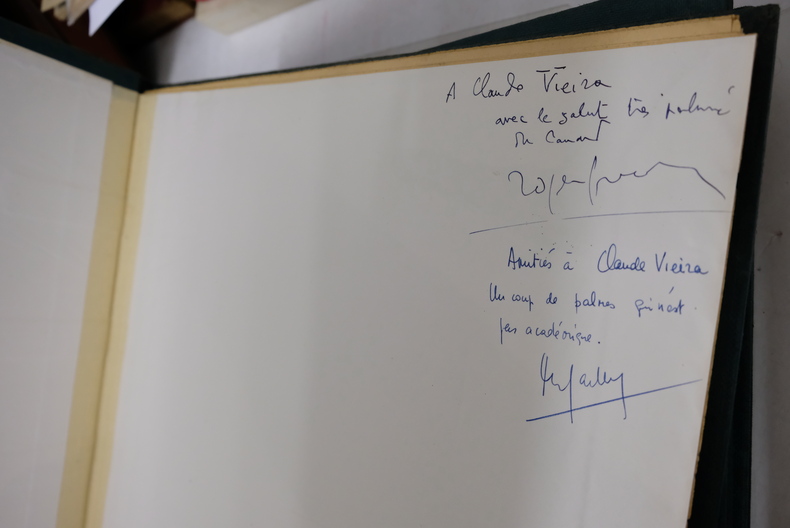 A Claude Vieira
avec le salut très palmé
du Canard
Amitiés à Claude Vieira
Un coup de palmes qui n'est
pas académique.